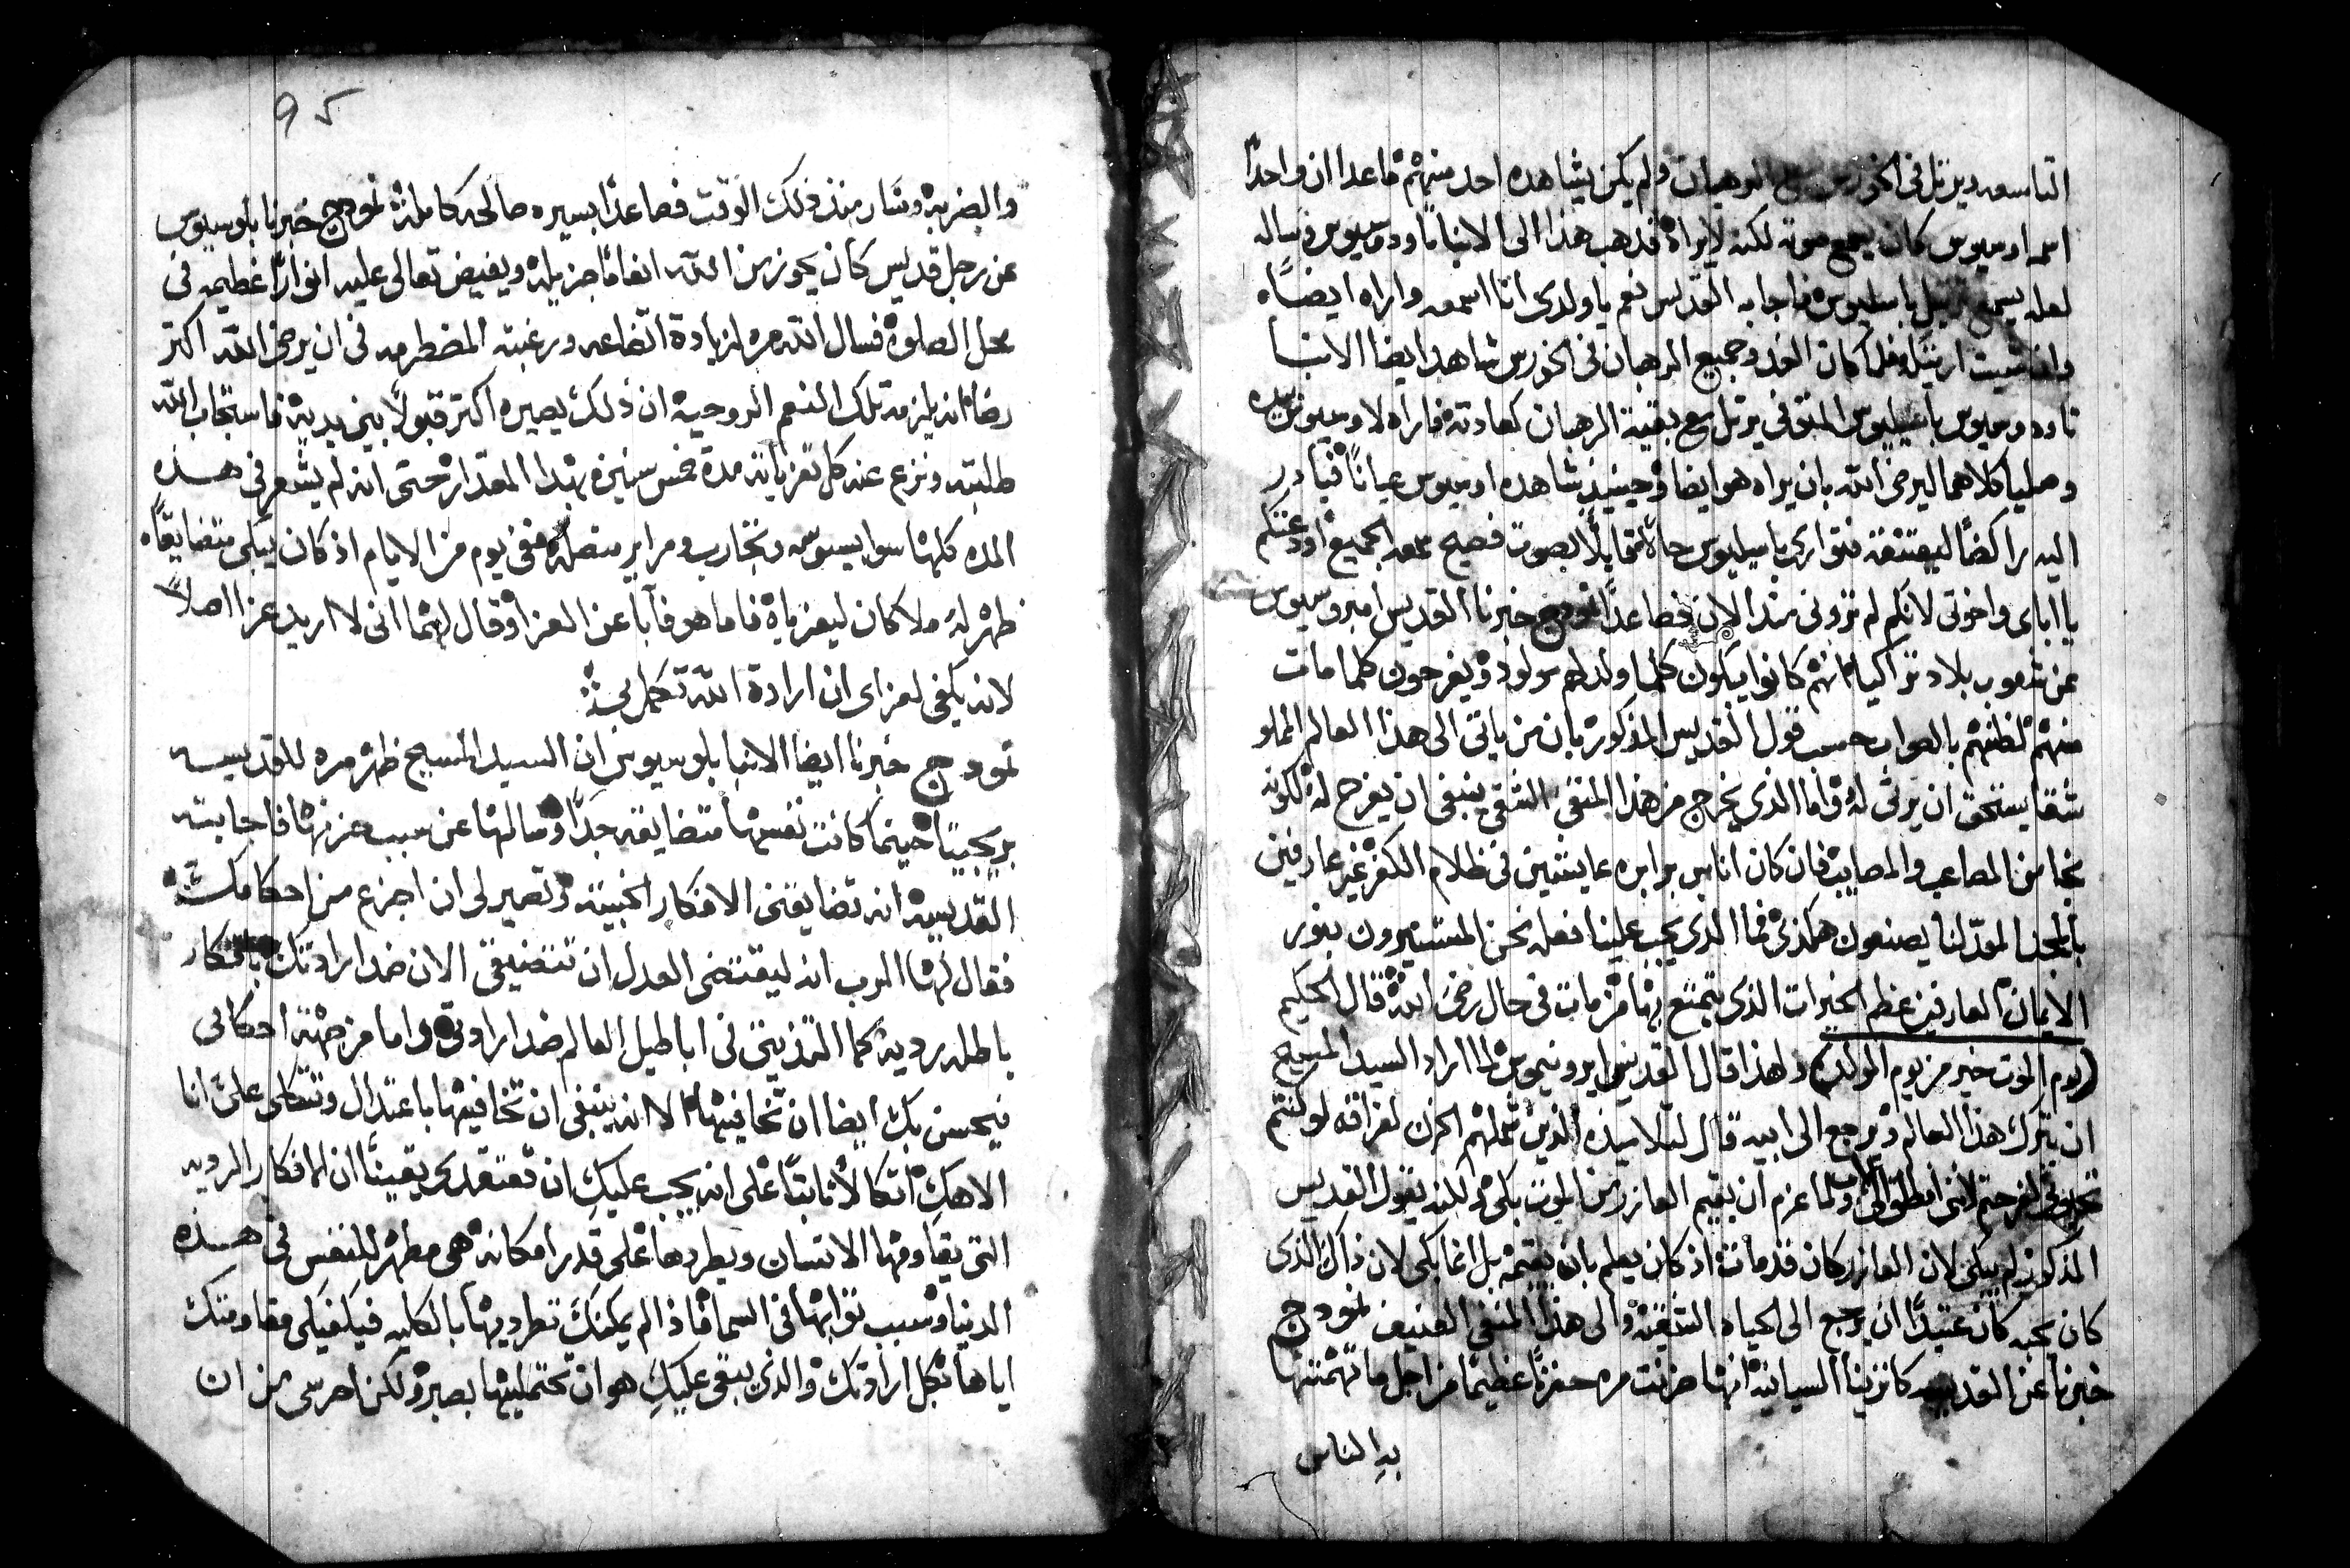 التاسعه ويرتل فى الخورس مع الرهبان ولم يكن يشاهده احد منهم ماعدا ان واحدًا
اسمه اوسيوس كان يسمع صوته لكنه لايراه فذهب هذا الى الانبا تاودوسيوس وساله
لعله يسمع ترتيل باسيليوس فاجابه القديس نعم ياولدى انا اسمعه واراه ايضًا
وان شيت اريتك فلما كان الغد وجميع الرهبان فى الخورس شاهد ايضا الانبا
تاودوسيوس باسيليوس المتوفى يرتل مع بقية الرهبان كعادته فاراه لاوسيوس بيده
وصليا كلاهما ليرضى الله بان يراه هو ايضا وحينيذ شاهده اوسيوس عيانًا فبادر
اليه راكضًا ليعتنقه فتوارى باسيليوس حالا قايلًا بصوت فصيح سمعه الجميع اودعتكم
يااباى واخوتى لانكم لم ترونى منذ الان فصاعدًا نمودج خبرنا القديس امبروسيوس
عن شعوب بلاد تراكيا انهم كانوا يبكون كلما ولد لهم مولود ويفرحون كلما مات
منهم لظنهم بالصواب حسب قول القديس المذكور بان من ياتى الى هذا العالم المملو
شقا يستحق ان يرثى له واما الذى يخرج من هذا المنفى الشقى ينبغى ان يفرح له لكونه
نجا من المصاعب والمصايب فان كان اناس برابره عايشين فى ظلام الكفر غير عارفين
بالمجد المعدّ لنا يصنعون هكذى فما الذى يجب علينا فعله نحن المستنيرون بنور
الايمان العارفين عظم الخيرات الذى يتمتع بها من مات فى حال رضى الله قال الحكيم
(يوم الموت خير من يوم الولد) ولهذا قال القديس ايرونيموس لما اراد السيد المسيح
ان يترك هذا العالم ويرجع الى ابيه قال لتلاميذه الذين شملهم الحزن لفراقه لوكنتم
تحبونى لفرحتم لانى امطلق الى الاب ولما عزم ان يقيم العازر من الموت بكى لكنه يقول القديس
المذكور لم يبكى لان العازر كان قد مات اذ كان يعلم بان يقيمه بل انما بكى لان ذاك الذى
كان يحبه كان عتيدًا ان يرجع الى الحياه الشقيه والى هذا المنفى العنيف نمودج
خبرنا عن القديسه كاترينا السيانيه انها حزنت مره حزنًا عظيمًا من اجل ما تهمتها
به الناس
95
والضربه وصار منذ ذلك الوقت فصاعدًا بسيره صالحه كامله نمودج خبرنا بلوسيوس
عن رجل قديس كان يحوز من الله انعامًا جزيله ويفيض تعالى عليه انوارًا عظيمه فى
محل الصلوة فسال الله مره لزيادة اتضاعه ورغبته المضطرمه فى ان يرضى الله اكتر
رضا انه يلزمه تلك النعم الروحيه ان ذلك يصيره اكتر قبولًا بين يديه فاستجاب الله
طلبته ونزع عنه كل تعزياته مدة خمس سنين بهذا المقدار حتى انه لم يشعر فى هذه
المده كلها سوا بيبوسه وتجارب ومراير متصله ففى يوم من الايام اذ كان يبكى متضايقًا
ظهر له ملاكان ليعزياه فاما هو فآبا عن العزا وقال لهما انى لا اريد عزا اصلًا
لانه يكفى لعزاى ان ارادة الله تكمل بى
نمودج خبرنا ايضا الانبا بلوسيوس ان السيد المسيح ظهر مره للقديسه
بريجيتا حينما كانت نفسها متضايقه جدًّا وسالها عن سبب حزنها فاجابته
القديسه انه تضايقنى الافكار الخبيثه وتصير لى ان اجزع من احكامك
فقال لها الرب انه ليقتضى العدل ان تتضيقى الان ضد ارادتك بافكار
باطله رديه كما التذيتى فى اباطيل العالم ضد ارادتى واما من جهة احكامى
فيحسن بك ايضا ان تخافيها الا انه ينبغى ان تخافيها باعتدال وتتكلى علىّ انا
الاهك اتكالًا ثابتًا على انه يجب عليكِ ان تعتقدى يقينًا ان الافكار الرديه
التى يقاومها الانسان ويطردها على قدر امكانه هى مطهر للنفس فى هذه
الدنيا وسبب ثوابها فى السما فاذ الم يمكنك تطرديها بالكليه فيكفيكى مقاومتك
اياها بكل ارادتك والذى يبقى عليكِ هو ان تحتمليها بصبر ولكن احرسى من ان